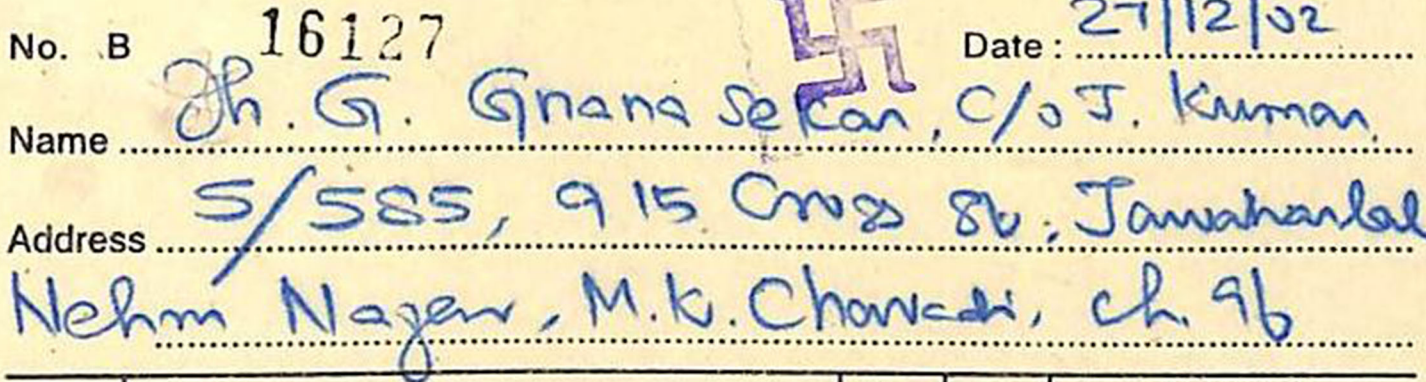 No. B 16127 Date : 27/12/02
Name Th. G. Gnana Sekar, C/o J. Kumar.
Address 5/585, 9 15 Cross St, Jawaharlal
Nehru Nagar, M.K. Chavadi, Ch. 96